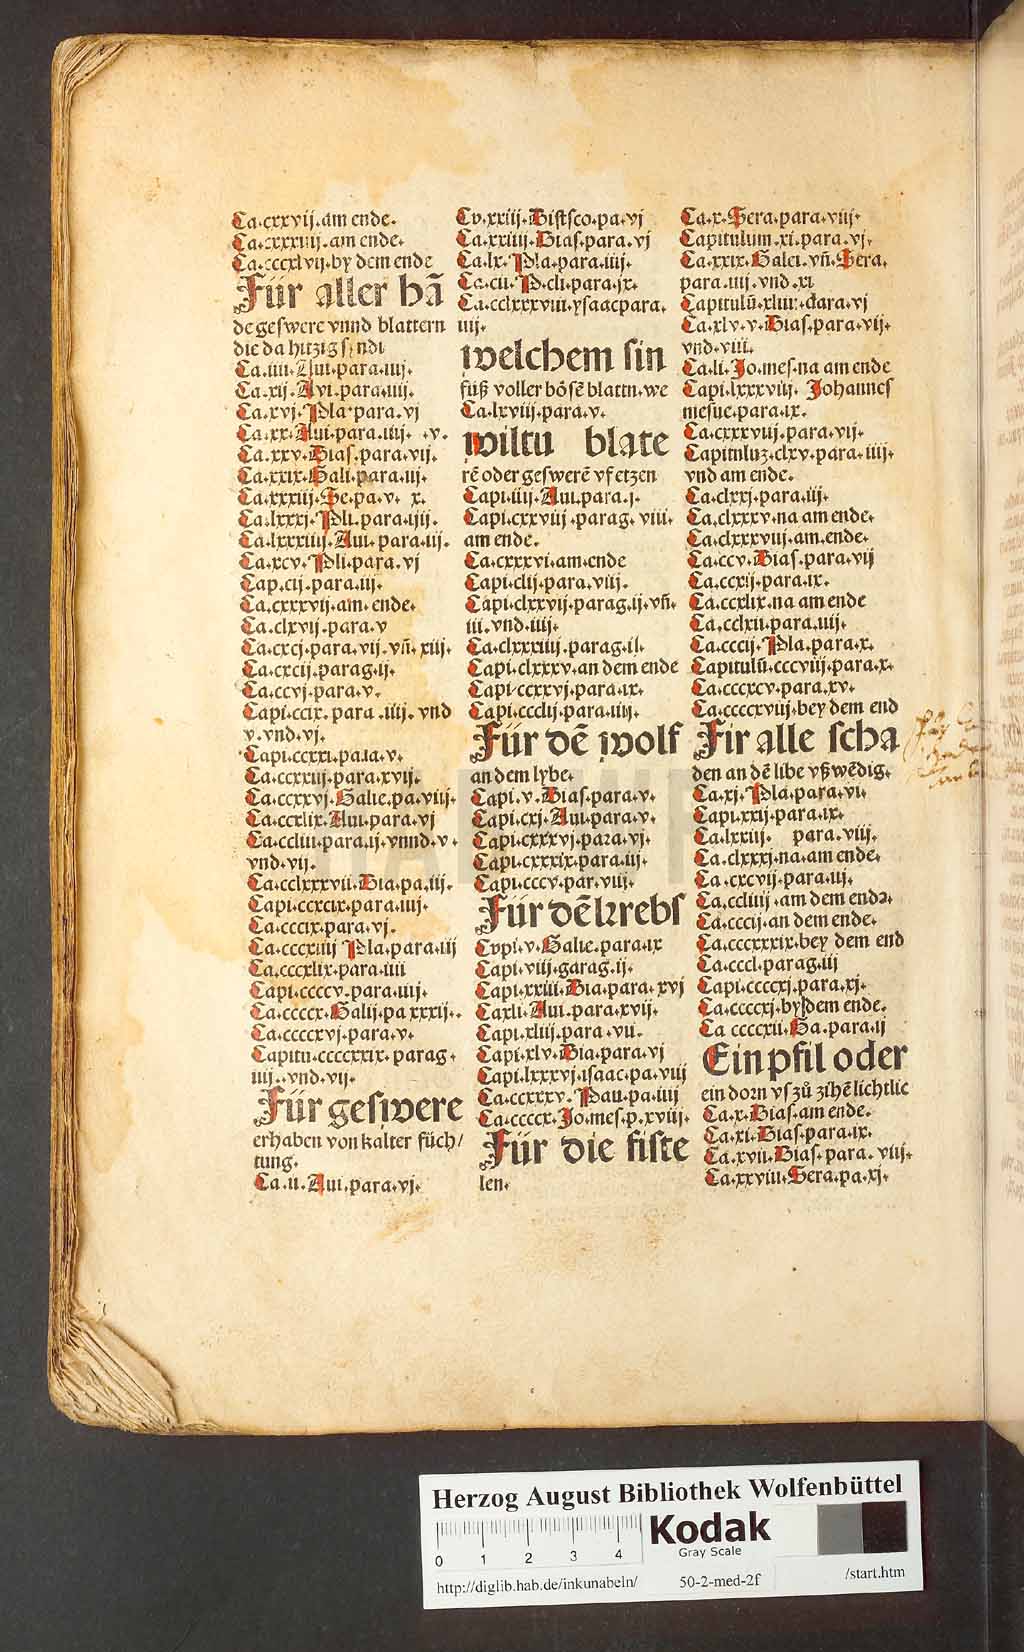 Ca.cxxvij.am ende.
Ca.cxxxiiij.am ende.
Ca.cccxlvij.by dem ende
Für aller hā
de geswere vnnd blattern
die da hitzig syndt
Ca.iiii.Aui.para.iiij.
Ca.xij.Avi.para.iiij.
Ca.xvj.Pla.para.vj
Ca.xx.Aui.para.iiij. .v.
Ca.xxv.Dias.para.vij.
Ca.xxix.Gali.para.iij.
Ca.xxxiij.Se.pa.v. x.
Ca.lxxxj.Pli.para.iiij.
Ca.lxxxiiij.Aui.para.iij.
Ca.xcv.Pli.para.vj
Cap.cij.para.iij.
Ca.cxxxvij.am.ende.
Ca.clxvij.para.v
Ca.cxcj.para.vij.vñ.xiij.
Ca.cxcij.parag.ij.
Ca.ccvj.para.v.
Capi.ccix.para.iiij.vnd
v.vnd.vj.
Capi.ccxxi.para.v.
Ca.ccxxiij.para.xvij.
Ca.ccxxvj.Galie.pa.viij.
Ca.ccxlix.Aui.para.vj
Ca.ccliii.para.ij.vnnd.v.
vnd.vij.
Ca.cclxxxvii.Dia.pa.iij.
Capi.ccxcix.para.iiij.
Ca.cccix.para.vj.
Ca.cccxiiij Pla.para.iij
Ca.cccxlix.para.iiii
Capi.ccccv.para.iiij.
Ca.ccccx.Galij.pa xxxij.
Ca.ccccxvj.para.v.
Capitu.ccccxxix.parag.
iiij..vnd.vij.
Für geswere
erhaben von kalter füch/
tung.
Ca.ii.Aui.para.vj.
Cv.xxiij.Distsco.pa.vj
Ca.xxiiij.Dias.para.vj
Ca.lx.Pla.para.iiij.
Ca.cii.P.cli.para.ix.
Ca.cclxxxviii.ysaacpara.
iiij.
welchem sin
füß voller bösē blattn.we
Ca.lxviij.para.v.
wiltu blate
rē oder geswerē vf etzen
Capi.iiij.Aui.para.j.
Capi.cxxviij.parag.viii.
am ende.
Ca.cxxxvi.am.ende
Capi.clij.para.viij.
Capi.clxxvij.parag.ij.vñ.
iii.vnd.iiij.
Ca.clxxxiiij.parag.ij.
Capi.clxxxv.an dem ende
Capi.ccxxvj.para.ix.
Capi.cccliij.para.iiij.
Für dē wolf
an dem lybe.
Capi.v.Dias.para.v.
Capi.cxj.Aui.para.v.
Capi.cxxxvj.para.vj.
Capi.cxxxix.para.iij.
Capi.cccv.par.viij.
Für dē krebs
Cvpi.v.Galie.para.ix
Capi.viij.garag.ij.
Capi.xxiii.Dia.para.xvj
Caxli.Aui.para.xvij.
Capi.xliij.para.vii.
Capi.xlv.Dia.para.vj
Capi.lxxxvj.isaac.pa.viij
Ca.ccxxxv.Pau.pa.iiij
Ca.ccccx.Jo.mes.p.xviij.
Für die fiste
len.
Ca.x.Sera.para.viij.
Capitulum.xi.para.vj.
Ca.xxix.Galei.vñ.Sera.
para.iij.vnd.xi
Capitulū.xliii.dara.vj
Ca.xlv.v.Dias.para.vij.
vnd.viii.
Ca.li.Jo.mes.na am ende
Capi.lxxxviij. Johannes
mesue.para.ix.
Ca.cxxxvij.para.vij.
Capitnluz.clxv.para.iiij.
vnd am ende.
Ca.clxxj.para.iij.
Ca.clxxxv.na am ende.
Ca.clxxxviij.am.ende.
Ca.ccv.Dias.para.vij
Ca.ccxij.para.ix.
Ca.ccxlix.na am ende
Ca.cclxii.para.iiij.
Ca.cccij.Pla.para.x.
Capitulū.cccviij.para.x.
Ca.cccxcv.para.xv.
Ca.ccccxviij.bey dem end
Fir alle scha
den an dē libe vßwēdig.
Ca.xj.Pla.para.vi.
Capi.xxij.para.ix.
Ca.lxxiij. para.viij.
Ca.clxxxj.na.am ende.
Ca.cxcvij.para.iij.
Ca.ccliiij.am dem ende.
Ca.cccij.an dem ende.
Ca.cccxxxix.bey dem end
Ca.cccl.parag.iij
Capi.ccccxj.para.xj.
Ca.ccccxj.by dem ende.
Ca ccccxii.Ga.para.ij
Ein pfil oder
ein dorn vs zů zihē lichtlic
Ca.x.Dias.am ende.
Ca.xi.Dias.para.ix.
Ca.xvii.Dias.para.viij.
Ca.xxviii.Sera.pa.xj.
Herzog August Bibliothek Wolfenbüttel
0 1 2 3 4
Kodak
Gray Scale
http://diglib.hab.de/inkunabeln/ 50-2-med-2f /start.htm